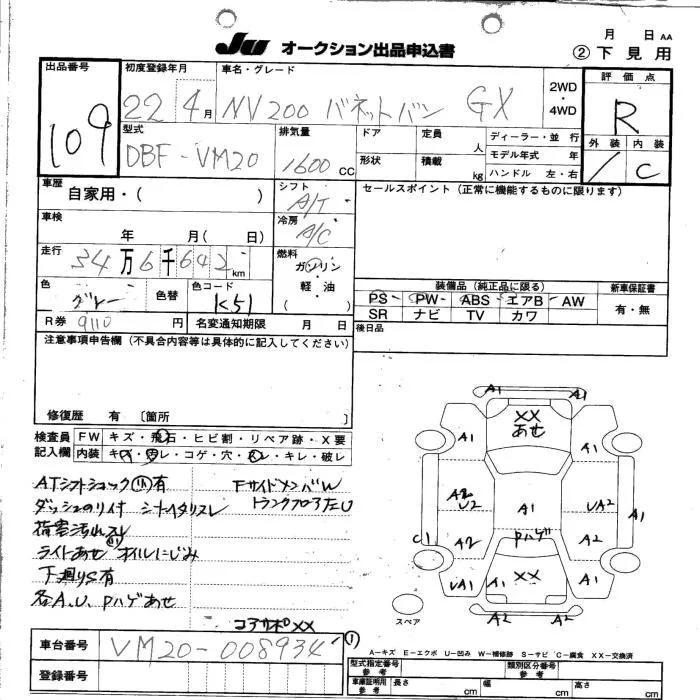 JU オークション出品申込書
月 日 AA
② 下見用
出品番号 109
初度登録年月 22 4月
車名・グレード NV200 バネットバン GX
2WD・4WD
評価点 R
外装 / 内装 C
型式 DBF-VM20
排気量 1600 CC
ドア 定員 人
形状 積載 kg
ディーラー・並行
モデル年式 年
ハンドル 左・右
車歴 自家用・( )
シフト A/T
セールスポイント (正常に機能するものに限ります)
車検 年 月( 日)
冷房 A/C
走行 34万6千642km
燃料 ガソリン・軽油 ( )
色 グレー 色替 色コード K51
装備品 (純正品に限る)
新車保証書
PS PW ABS エアB AW
有・無
SR ナビ TV カワ
R券 9110 円 名変通知期限 月 日
後日品
注意事項申告欄 (不具合内容等は具体的に記入してください)
修復歴 有 〔箇所 〕
検査員記入欄 FW キズ・飛石・ヒビ割・リペア跡・X要
内装 キズ・ヨゴレ・コゲ・穴・スレ・キレ・破レ
ATシフトショック 有
Fサイドメンバ W
トランクフロア U
ダッシュのり付 シートスレ
ライトあせ オイルにじみ
下廻りS有
各A.U. Pハゲあせ
コアサポXX
A1 A1
XX
あせ
A1 A1
A2 U2 A1 UA2 A1
C1 A2 Pハゲ A2
UA1 A1 XX A1
A2 A2
スペア
車台番号 VM20-008934
①
A-キズ E-エクボ U-凹み W-補修跡 S-サビ C-腐食 XX-交換済
登録番号
型式指定番号 参考 類別区分番号 参考
車庫証明用 参考 長さ cm 幅 cm 高さ cm